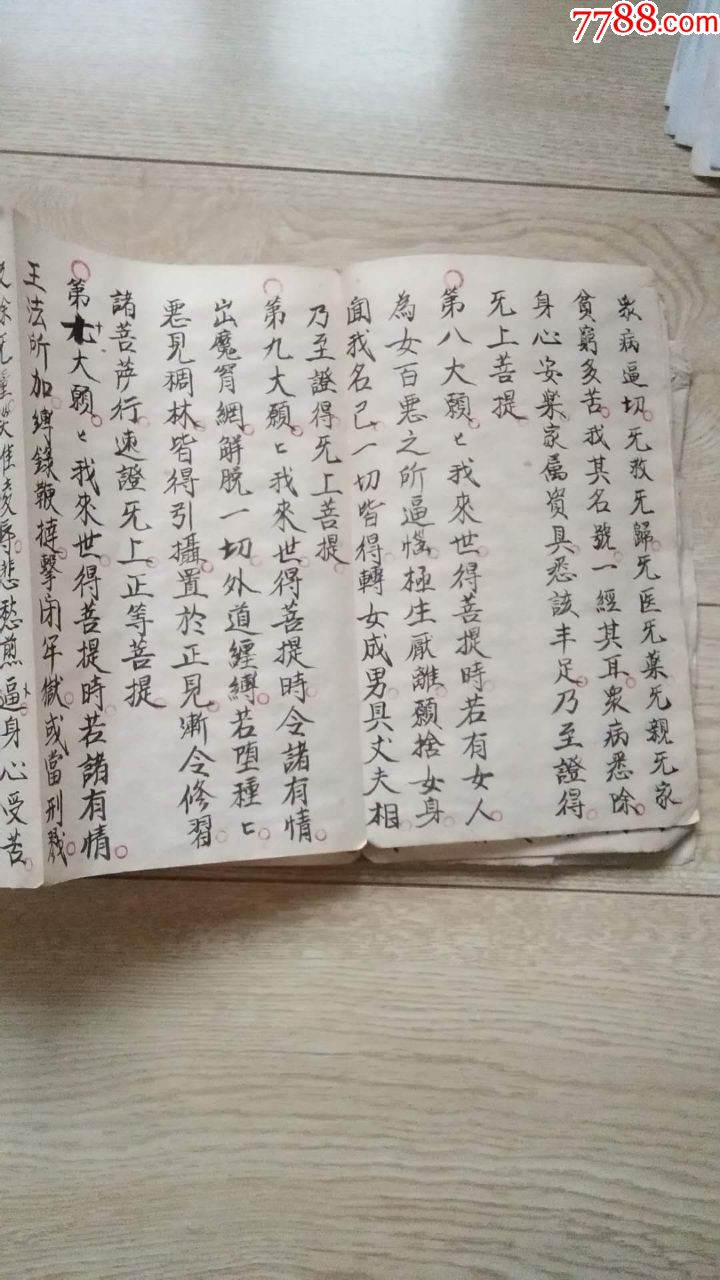 7788.com
眾病逼切旡救旡歸旡医旡藥旡親旡家
貧窮多苦我其名號一經其耳眾病悉除
身心安樂家属資具悉該丰足乃至證得
旡上菩提
第八大願匕我來世得菩提時若有女人
為女百惡之所逼惱極生厭離願捨女身
聞我名已一切皆得轉女成男具丈夫相
乃至證得旡上菩提
第九大願匕我來世得菩提時令諸有情
出魔罥網解脫一切外道纏縛若堕種匕
惡見稠林皆得引攝置於正見漸令修習
諸菩薩行速證旡上正等菩提
第十大願匕我來世得菩提時若諸有情
王法所加縛錄鞭撻擊闭牢獄或當刑戮
旡量凌辱悲愁煎逼身心受苦